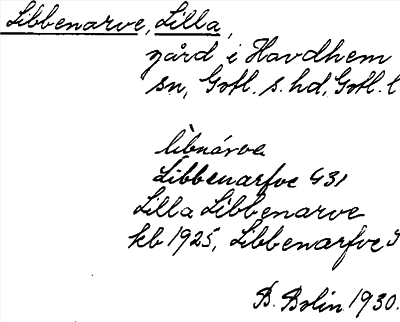 Libbenarve, Lilla,
gård i Havdhem
sn, Gotl. s. hd, Gotl. l
lìbnárve
Libbenarfve G31
Lilla Libbenarve
kb 1925, Libbenarfve
B. Bolin 1930.